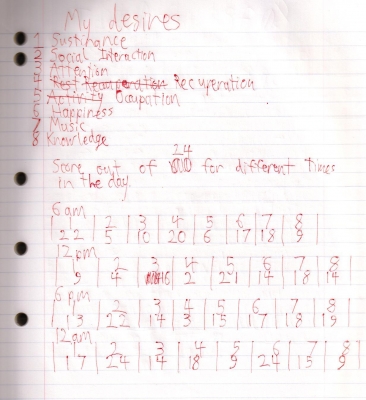 My desires
1 Sustinance
2 Social Interaction
3 Attention
4 Rest Recuperation Recuperation
5 Activity Occupation
6 Happiness
7 Music
8 Knowledge
24
Score out of for different times
in the day.
6 am
| 1 | 2 | 3 | 4 | 5 | 6 | 7 | 8 |
| 22 | 5 | 10 | 20 | 6 | 17 | 18 | 9 |
12 pm
| 1 | 2 | 3 | 4 | 5 | 6 | 7 | 8 |
| 9 | 4 | 16 | 2 | 21 | 14 | 18 | 14 |
6 pm
| 1 | 2 | 3 | 4 | 5 | 6 | 7 | 8 |
| 13 | 22 | 14 | 3 | 15 | 17 | 18 | 19 |
12 am
| 1 | 2 | 3 | 4 | 5 | 6 | 7 | 8 |
| 17 | 24 | 14 | 18 | 9 | 24 | 15 | 9 |